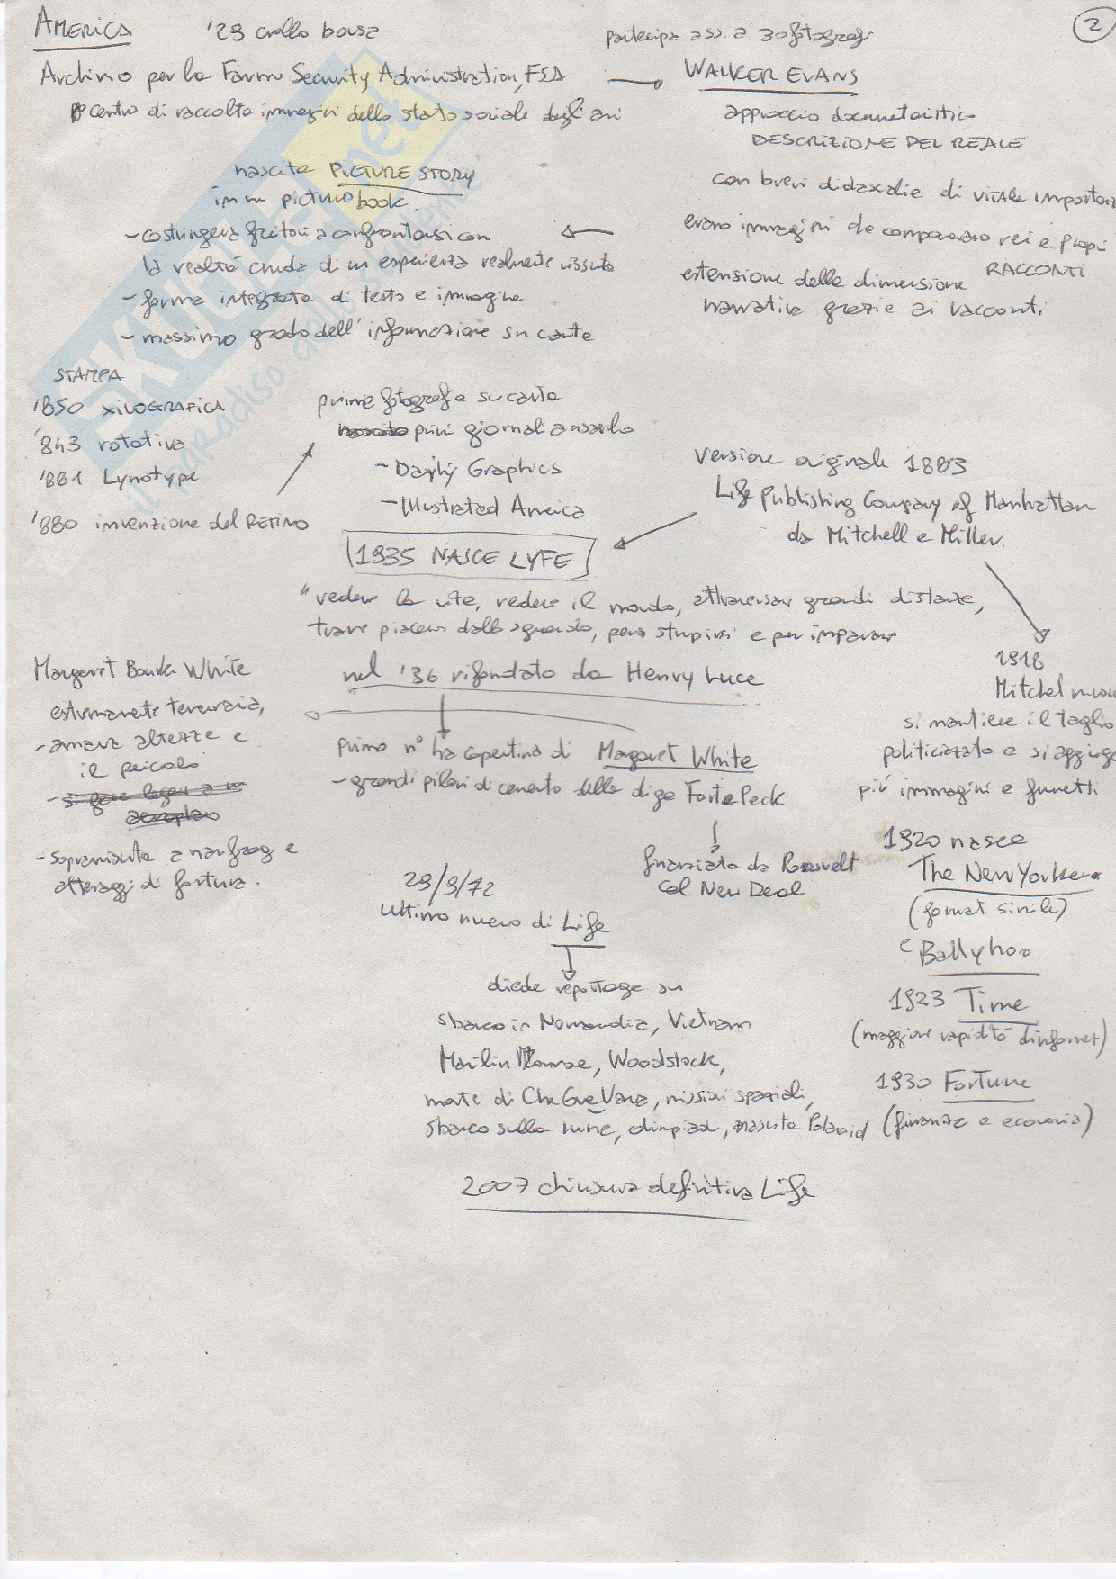 AMERICA '29 crollo borsa
2
partecipa ass. a 30 fotografi
Archivio per la Farm Security Administration, FSA
WALKER EVANS
centro di raccolta immagini dello stato sociale degli anni
approccio documentaristico
DESCRIZIONE DEL REALE
nascita PICTURE STORY
in un picture book
con brevi didascalie di vitale importanza
- costringeva fruitori a confrontarsi con
la realtà cruda di un esperienza realmente vissuta
erano immagini che componevano veri e propri
RACCONTI
- forma integrata di testo e immagine
estensione della dimensione
narrativa grazie ai racconti
- massimo grado dell'informazione su carta
STAMPA
'850 XILOGRAFICA
'843 rotativa
'881 Lynotype
'880 invenzione del RETINO
prime fotografie su carta
primi giornali a usarlo
- Dayly Graphics
- Illustrated America
versione originale 1883
Life Publishing Company of Manhattan
da Mitchell e Miller
1935 NASCE LYFE
"vedere la vita, vedere il mondo, attraversar grandi distanze,
trarre piacere dallo sguardo, per stupirsi e per imparare
nel '36 rifondato da Henry Luce
Margaret Bourk White
estremamente temeraria,
- amava altezze e
il pericolo
- sopravvissuta a naufragi e
atterraggi di fortuna.
primo n° ha copertina di Margaret White
- grandi piloni di cemento della diga Forte Peck
finanziata da Roosvelt
col New Deal
1918
Mitchel muore
si mantiene il taglio
politicizzato e si aggiungono
più immagini e fumetti
1920 nasce
The New Yorker
(format simile)
e Ballyhoo
1923 Time
(maggiore rapidità d'informaz)
1930 Fortune
(finanza e economia)
29/9/72
ultimo numero di Life
diede reportage su
sbarco in Normandia, Vietnam
Marilin Monroe, Woodstock,
morte di Che Gue Vara, missioni spaziali,
sbarco sulla luna, olimpiadi, nascita Polaroid
2007 chiusura definitiva Life